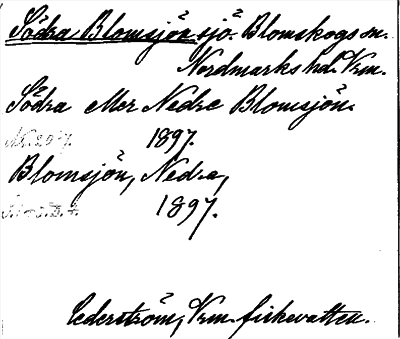 Södra Blomsjön sjö. Blomskogs sn.
Nordmarks hd. Vrm.
Södra eller Nedre Blomsjön.
1897.
Blomsjön, Nedra,
1897.
Cederström, Vrm. fiskevatten.